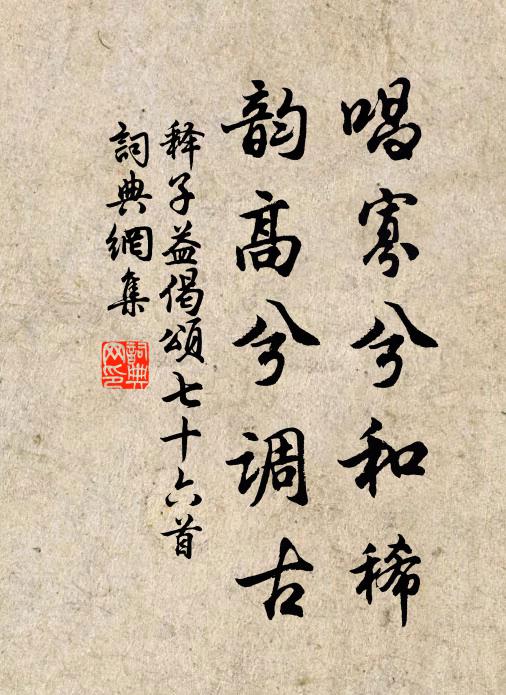 唱寡兮和稀
韵高兮调古
释子益偈颂七十六首
詞典網集
詞典
网印